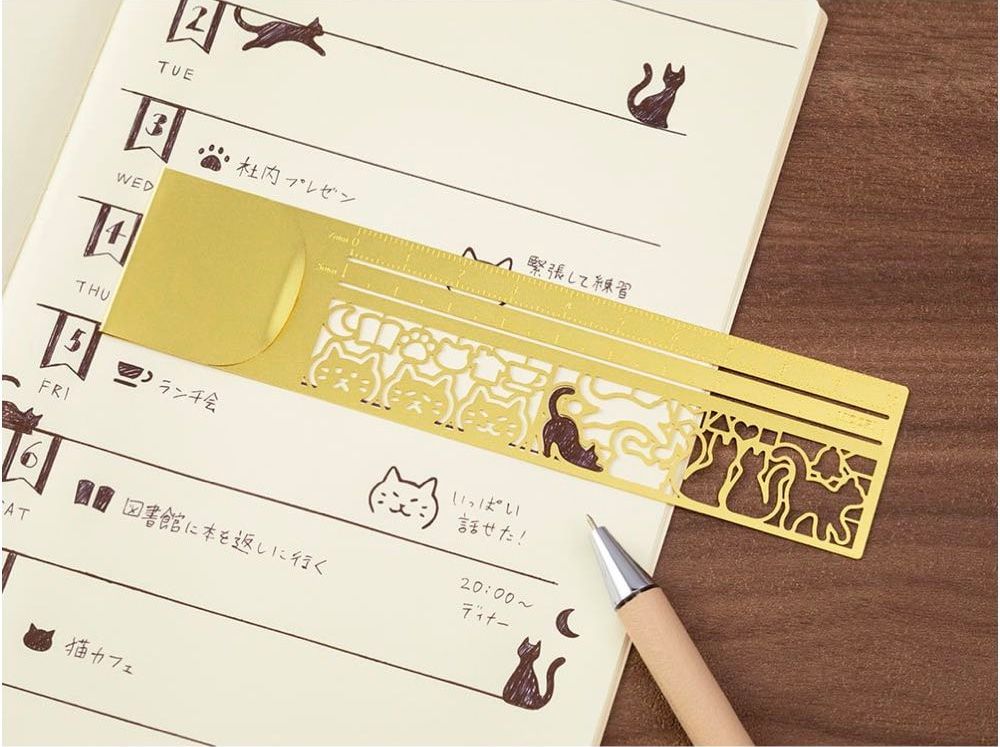 2
TUE
3
社内プレゼン
WED
4
緊張して練習
THU
5
ランチ会
FRI
6
いっぱい
話せた!
図書館に本を返しに行く
AT
20:00〜
ディナー
猫カフェ